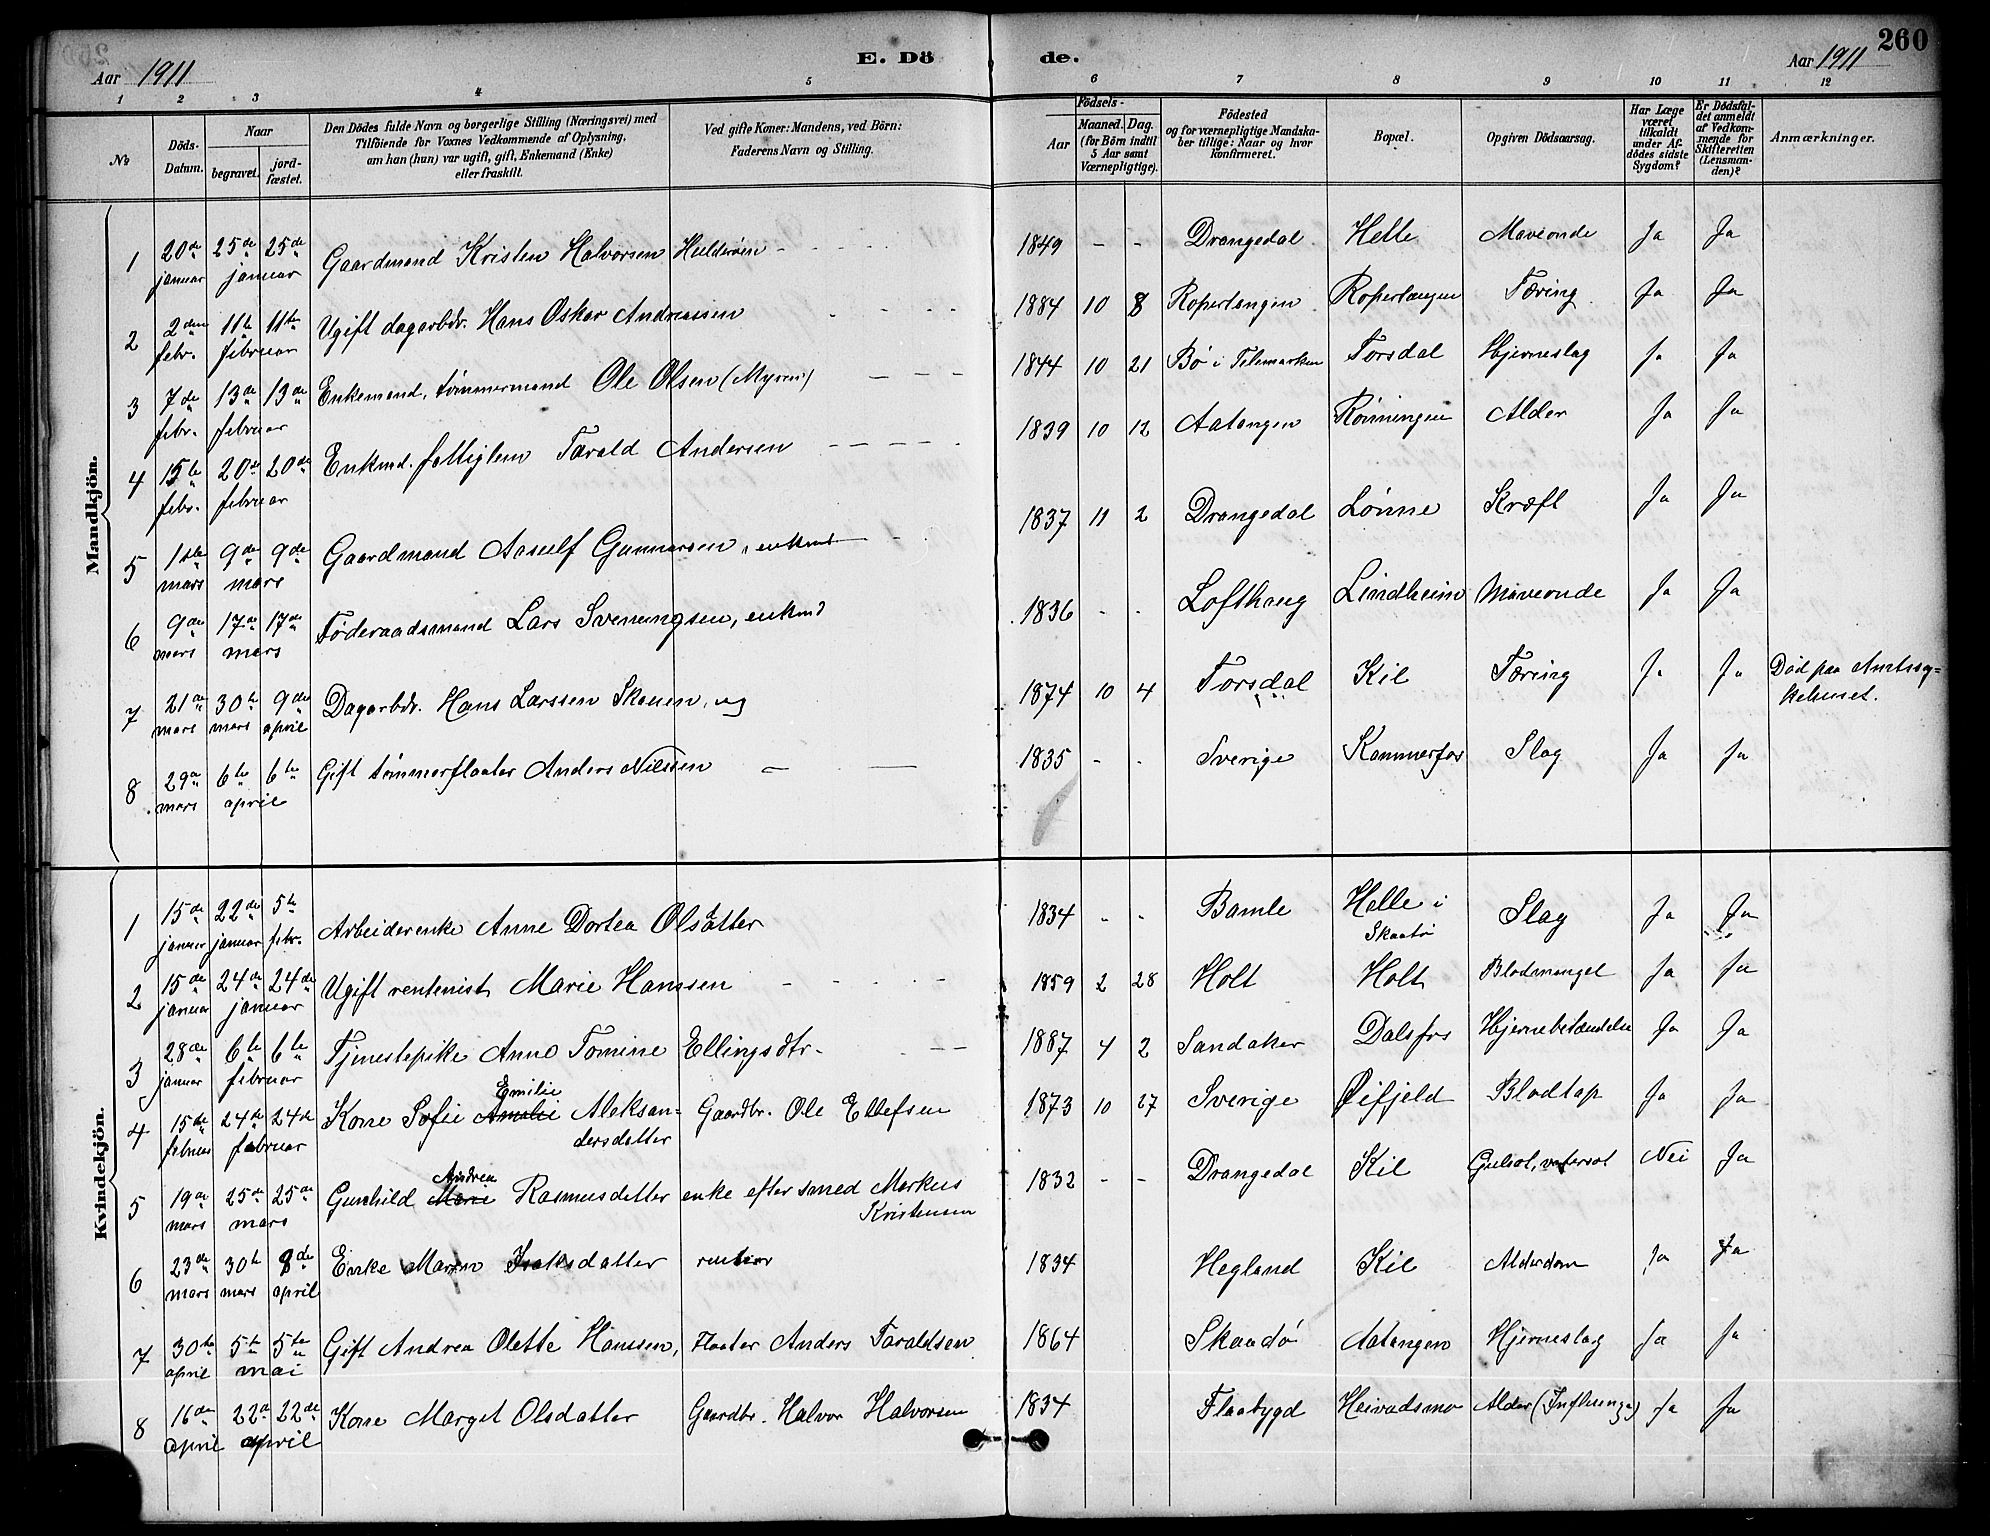 260
Aar 1911
E. Dö
de.
Aar 1911
1 2 3 4 5 6 7 8 9 10 11 12
№
Döds-Datum.
Naar
begravet.
jord-fæstet.
Den Dödes fulde Navn og borgerlige Stilling (Næringsvei) med
Tilföiende for Voxnes Vedkommende af Oplysning,
am han (hun) var ugift, gift, Enkemand (Enke)
eller fraskilt.
Ved gifte Koner: Mandens, ved Börn:
Faderens Navn og Stilling.
Födsels-
Aar
Maaned. Dag.
(for Börn indtil
5 Aar samt
Værnepligtige).
Födested
og for værnepligtige Mandska-
ber tillige: Naar og hvor
konfirmeret.
Bopæl.
Opgiven Dödsaarsag.
Har Læge
været
tilkaldt
under Af-
dödes sidste
Sygdom?
Er Dödsfal-
det anmeldt
af Vedkom-
mende for
Skifteretten
(Lensman-
den)?
Anmærkninger.
Mandkjön.
1 20de januar 25de 25de januar Gaardmand Kristen Halvorsen Hulderöen - 1849 - - Drangedal Helle Maveonde Ja Ja
2 2den febr. 11te 11te februar Ugift dagarbdr. Hans Oskar Andreassen 1884 10 8 Ropertangen Ropertangen Tæring Ja Ja
3 7de febr. 13de 13de februar Enkemand, tömmermand Ole Olsen (Myren) 1844 10 21 Bö i Telemarken Torsdal Hjerneslag Ja Ja
4 15te febr. 20de 20de februar Enkmd. fattiglem Tarald Andersen 1839 10 12 Aatangen Rönningen Alder Ja Ja
5 1ste mars 9de 9de mars Gaardmand Aasulf Gunnarsen, enkmd 1837 11 2 Drangedal Lönne Kræft Ja Ja
6 9de mars 17de 17de mars Föderaadsmand Lars Svenungsen, enkmd 1836 - - Lofthaug Lindheim Maveonde Ja Ja
7 21de mars 30te mars 9de april Dagarbdr. Hans Larssen Skauen, ug 1874 10 4 Torsdal Kil Tæring Ja Ja Död paa Amtssy-
kehuset.
8 29de mars 6te 6te april Gift tömmerfloater Anders Nilssen 1835 - - Sverige Kammerfos Slag Ja Ja
Kvindekjön.
1 15de januar 22de januar 5te febr. Arbeiderenke Anne Dortea Olsdatter 1834 - - Bamle Helle i Skaatö Slag Ja Ja
2 15de januar 24de 24de januar Ugift rentenist Marie Hanssen 1859 2 28 Holt Holt Blodmangel Ja Ja
3 28de januar 6te 6te februar Tjenestepike Anne Tomine Ellingsdtr. 1887 4 2 Sandaker Dalsfos Hjernebetændelse Ja Ja
4 15de februar 24de 24de februar Kone Sofie Amalie Emilie Aleksan-
dersdatter Gaardbr. Ole Ellefsen 1873 10 27 Sverige Öifjeld Blodtap Ja Ja
5 19de mars 25de 25de mars Gunhild Marie Andrea Rasmusdatter enke efter smed Markus
Kristensen 1832 - - Drangedal Kil Gulsot, vatersot Nei Ja
6 23de mars 30te mars 8de april Enke Maren Isaksdatter rentier 1834 Hegland Kil Alderdom Ja Ja
7 30te april 5te 5te mai Gift Andrea Olette Hansen, Floater Anders Taraldsen 1864 Skaadö Aatangen Hjerneslag Ja Ja
8 16de april 22de 22de april Kone Marget Olsdatter Gaardbr. Halvor Halvorsen 1834 Flaabygd Heivadsmo Alder Ja Ja